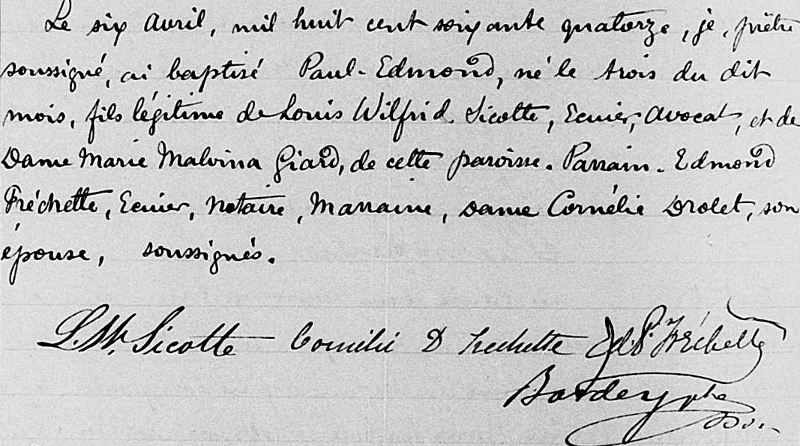 Le six avril, mil huit cent soixante quatorze, je, prêtre
soussigné, ai baptisé Paul-Edmond, né le trois du dit
mois, fils légitime de Louis Wilfrid Sicotte, Ecuier, Avocat, et de
Dame Marie Malvina Giard, de cette paroisse. Parrain. Edmond
Fréchette, Ecuier, Notaire, Marraine, Dame Cornélie Drolet, son
épouse, soussignés.
L. W. Sicotte Cornélie D Frechette Ed. Fréchette